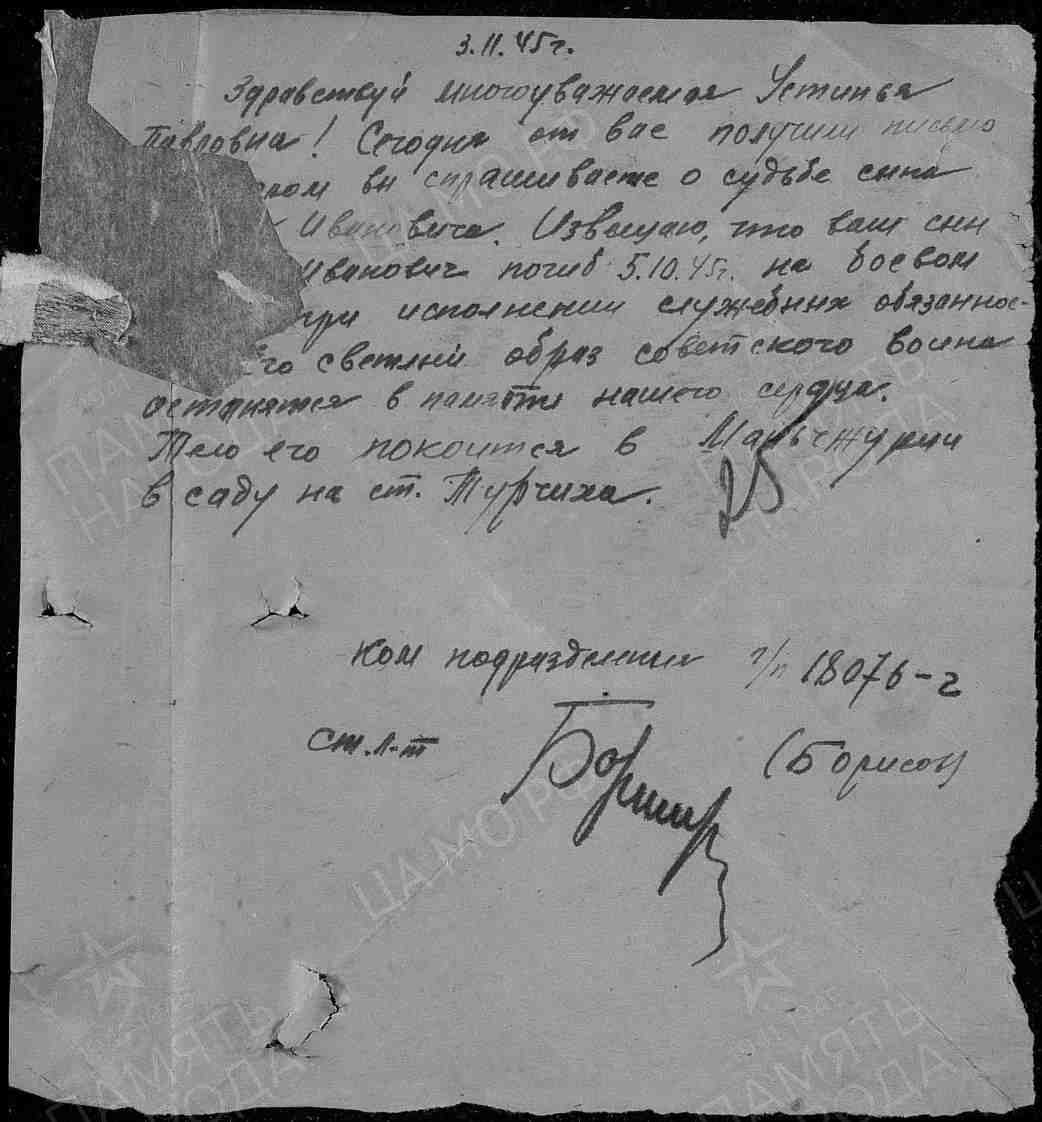 3.11.45г.
Здравствуй многоуважаемая Устинья
Павловна! Сегодня от вас получили письмо
ком вы спрашиваете о судьбе сына
Ивановича. Извещаю, что ваш сын
Иванович погиб 5.10.45г. на боевом
при исполнении служебных обязаннос-
Его светлый образ советского воина
останится в памяти нашего сердца.
Тело его покоится в Маньчжурии
в саду на ст. Турчиха.
25
Ком подразделения п/п 18076-г
ст. л-т (Борисов)
ЦА МО РФ
ПАМЯТЬ
НАРОДА